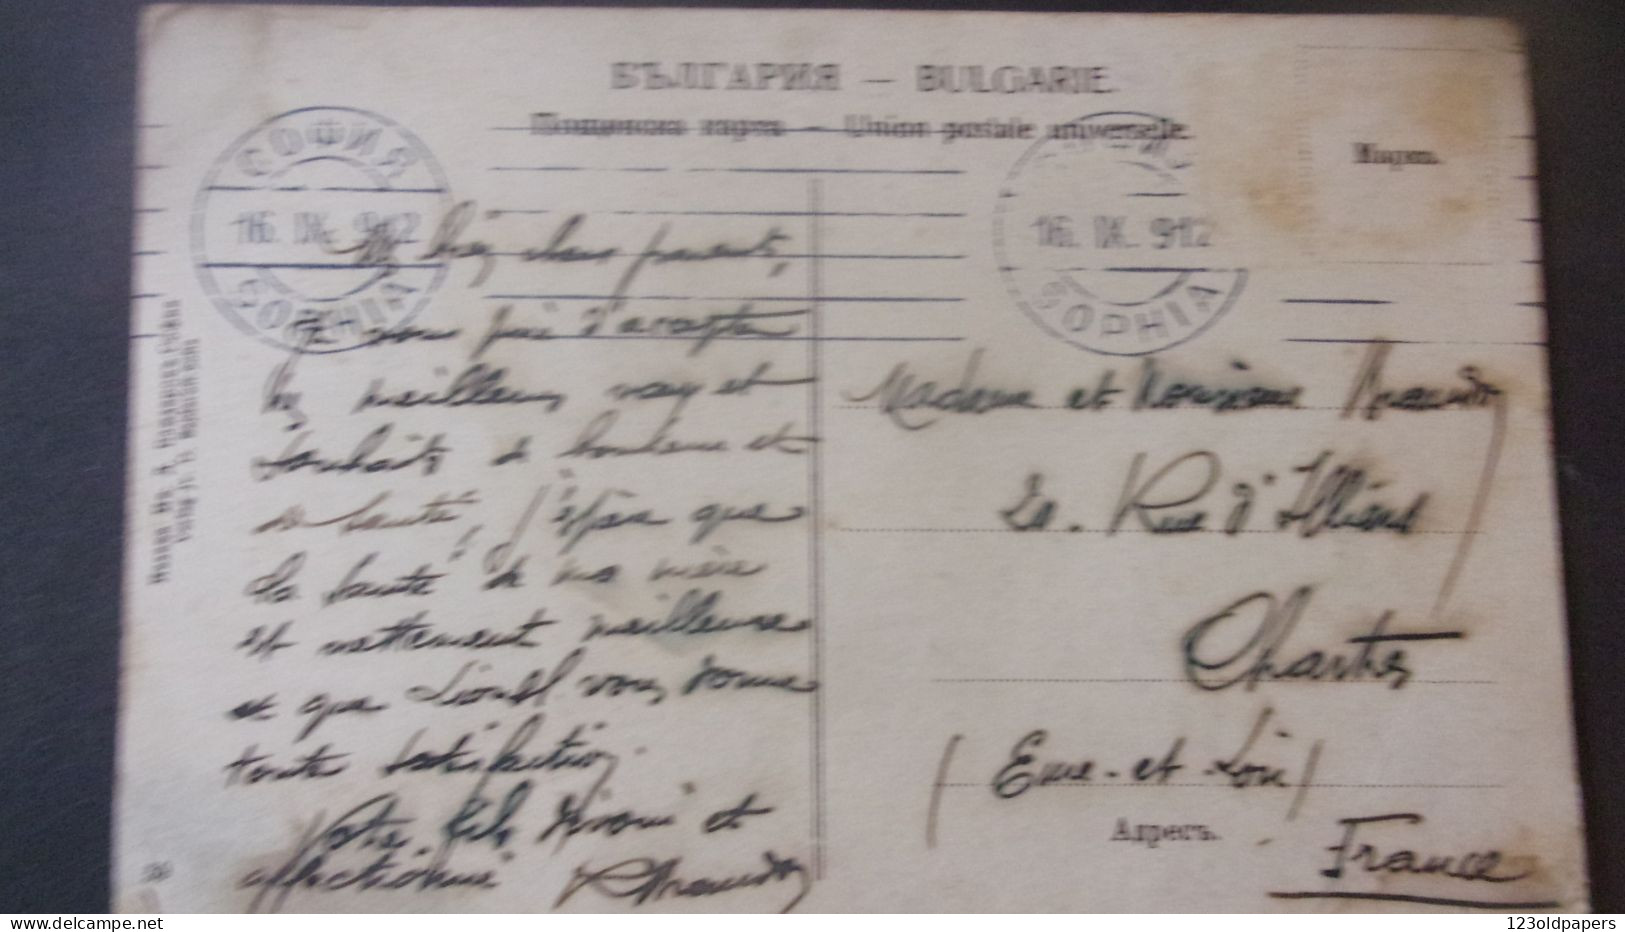 БЪЛГАРИЯ — BULGARIE.
Пощенска карта — Union postale universelle.
Марка.
СОФИЯ
16. IX. 912
SOPHIA
16. IX. 912
SOPHIA
Mes biens chers parents,
Je vous prie d'accepter
les meilleurs vœux et
souhaits de bonheur et
de santé, j'espère que
la santé de ma mère
est nettement meilleure
et que Lionel vous donne
toute satisfaction.
Votre fils dévoué et
affectionné
Madame et Monsieur
Rue d'Illiers
Chartres
(Eure-et-Loir)
Адресъ.
France
123oldpapers